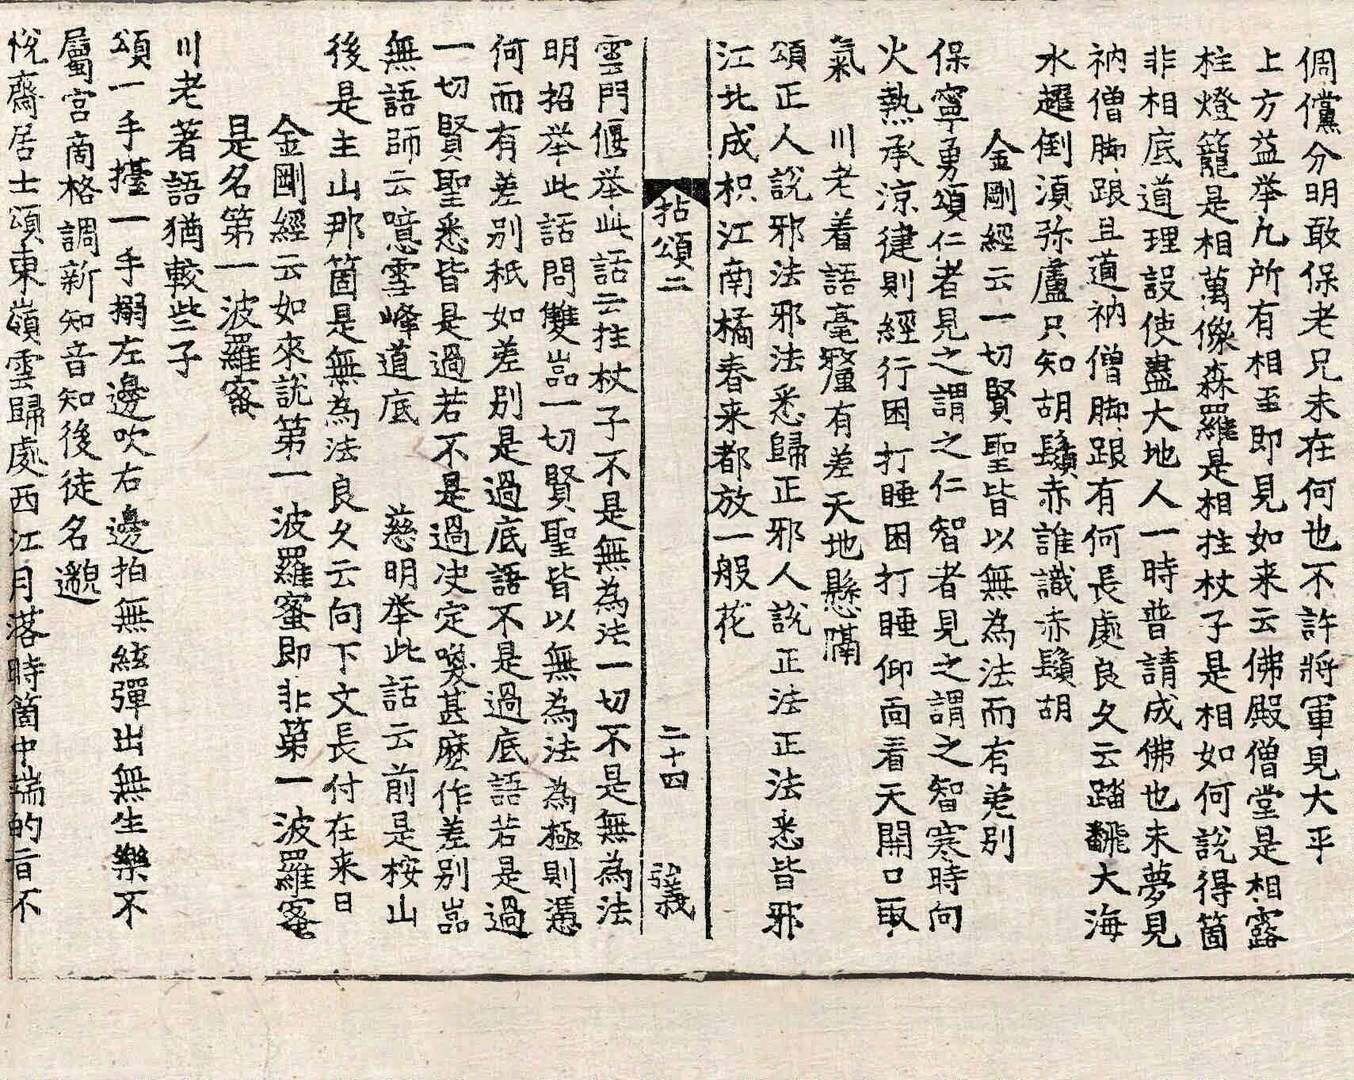 倜儻分明敢保老兄未在何也不許將軍見大平
上方益举凡所有相至即見如来云佛殿僧堂是相露
柱燈籠是相萬像森羅是相拄杖子是相如何說得箇
非相底道理設使盡大地人一時普請成佛也未夢見
衲僧脚跟且道衲僧脚跟有何長處良久云踏飜大海
水趯倒湏弥盧只知胡鬚赤誰識赤鬚胡
金剛經云一切賢聖皆以無為法而有差别
保寧勇頌仁者見之謂之仁智者見之謂之智寒時向
火熱承涼健則經行困打睡困打睡仰面看天開口取
氣 川老着語毫釐有差天地懸隔
頌正人說邪法邪法悉歸正邪人說正法正法悉皆邪
江北成枳江南橘春来都放一般花
拈頌二 二十四 義
雲門偃举此話云拄杖子不是無為法一切不是無為法
明招举此話問雙嵓一切賢聖皆以無為法為極則憑
何而有差别秖如差别是過底語不是過底語若是過
一切賢聖悉皆是過若不是過决定喚甚麽作差别嵓
無語師云噫雪峰道底 慈明举此話云前是桉山
後是主山那箇是無為法良久云向下文長付在来日
金剛經云如來說第一波羅蜜即非第一波羅蜜
是名第一波羅蜜
川老著語猶較些子
頌一手擡一手搦左邊吹右邊拍無絃彈出無生樂不
屬宮商格調新知音知後徒名邈
悅齋居士頌東嶺雲歸處西江月落時箇中端的旨不